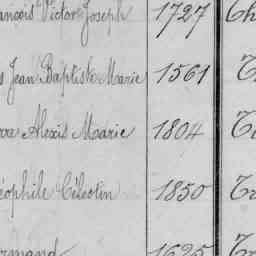 ançois Victor Joseph 1727 Th
s Jean Baptiste Marie 1561
rre Alexis Marie 1804
éophile Célestin 1850 Tr
rmand 1625